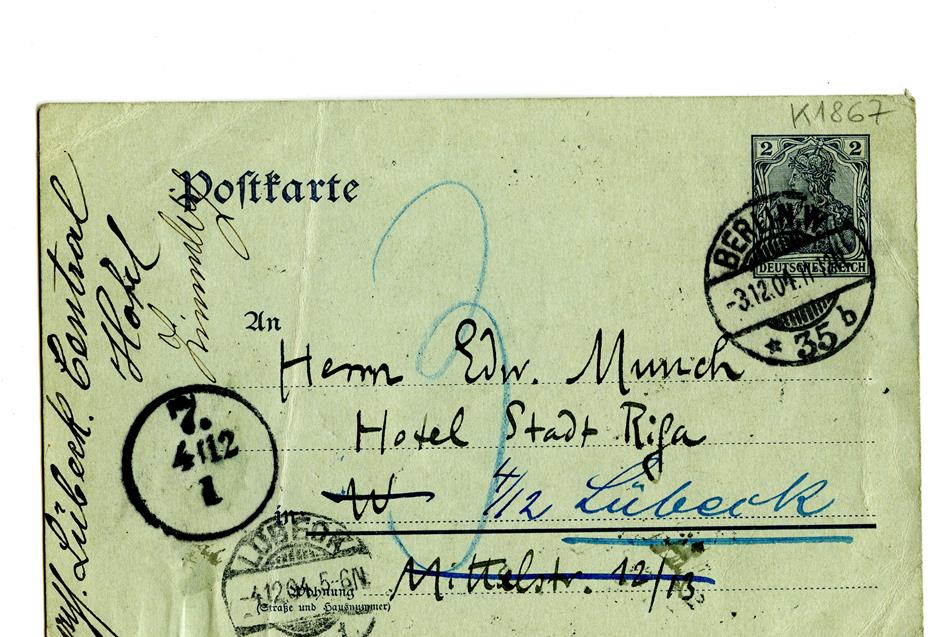 K1867
Postkarte
2 2
DEUTSCHES REICH
BERLIN.W.
-3.12.04.11-12N
* 35 b
An
Herrn Edw. Munch
Hotel Stadt Riga
in W 4/12 Lübeck
Mittelstr. 12/13
Wohnung
(Straße und Hausnummer)
7.
4/12
1
LÜBECK
-4.12.04. 5-6N.
1.
Lübeck. Central
Hotel
Zimmer
3